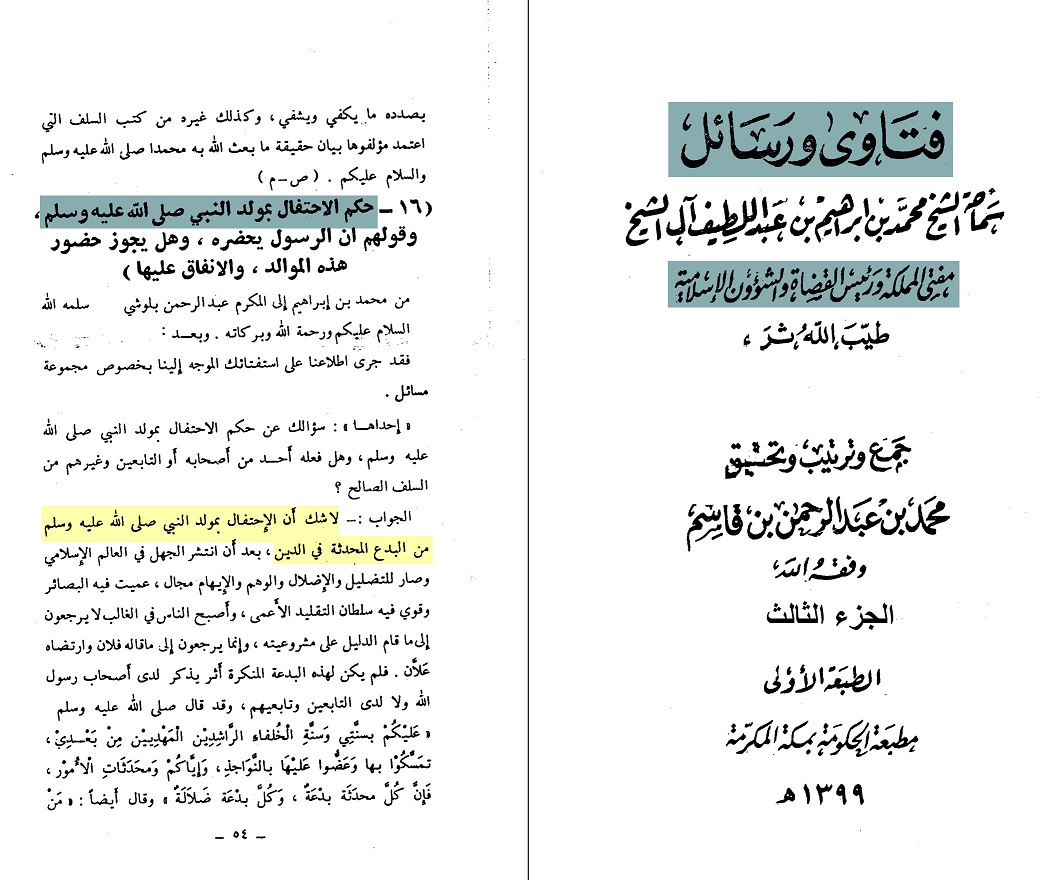 فتاوى ورسائل
سماحة الشيخ محمد بن ابراهيم بن عبد اللطيف آل الشيخ
مفتي المملكة ورئيس القضاة والشؤون الإسلامية
طيب الله ثراه
جمع وترتيب وتحقيق
محمد بن عبد الرحمن بن قاسم
وفقه الله
الجزء الثالث
الطبعة الأولى
مطبعة الحكومة بمكة المكرمة
١٣٩٩هـ
بصدده ما يكفي ويشفي ، وكذلك غيره من كتب السلف التي
اعتمد مؤلفوها بيان حقيقة ما بعث الله به محمدا صلى الله عليه وسلم
والسلام عليكم . ( ص-م )
(١٦ - حكم الاحتفال بمولد النبي صلى الله عليه وسلم ،
وقولهم ان الرسول يحضره ، وهل يجوز حضور
هذه الموالد ، والانفاق عليها )
من محمد بن إبراهيم إلى المكرم عبد الرحمن بلوشي سلمه الله
السلام عليكم ورحمة الله وبركاته . وبعـد :
فقد جرى اطلاعنا على استفتائك الموجه إلينا بخصوص مجموعة
مسائل .
« إحداهـا » : سؤالك عن حكم الاحتفال بمولد النبي صلى الله
عليه وسلم ، وهل فعله أَحـد من أَصحابه أَو التابعين وغيرهم من
السلف الصالح ؟
الجواب :ـ لاشك أَن الإِحتفال بمولد النبي صلى الله عليه وسلم
من البدع المحدثة في الدين ، بعد أَن انتشر الجهل في العالم الإِسلامي
وصار للتضليل والإِضلال والوهم والإِيهام مجال ، عميت فيه البصائر
وقوي فيه سلطان التقليد الأَعمى ، وأَصبح الناس في الغالب لا يرجعون
إلى ما قام الدليل على مشروعيته ، وإنما يرجعون إلى ماقاله فلان وارتضاه
عَلَّان . فلم يكن لهذه البدعة المنكرة أَثر يذكر لدى أَصحاب رسول
الله ولا لدى التابعين وتابعيهم ، وقد قال صلى الله عليه وسلم
« عَلَيْكُمْ بسنَّتِي وَسنَّةِ الْخُلفاءِ الرَّاشِدِيْنَ الْمَهْدِيِيْنَ مِنْ بَعْـدِيْ ،
تمَسَّكُوْا بها وَعَضُّوا عَلَيْهَا بالنَّوَاجِذِ ، وَإِيَّاكُمْ وَمحَدَثَاتِ الْأُمُوْرِ ،
فَإِنَّ كُلَّ محدثَة بدْعَةٌ ، وَكُلَّ بدْعَة ضَلَالَةٌ » وقال أَيضاً : « مَنْ
ـ ٥٤ ـ